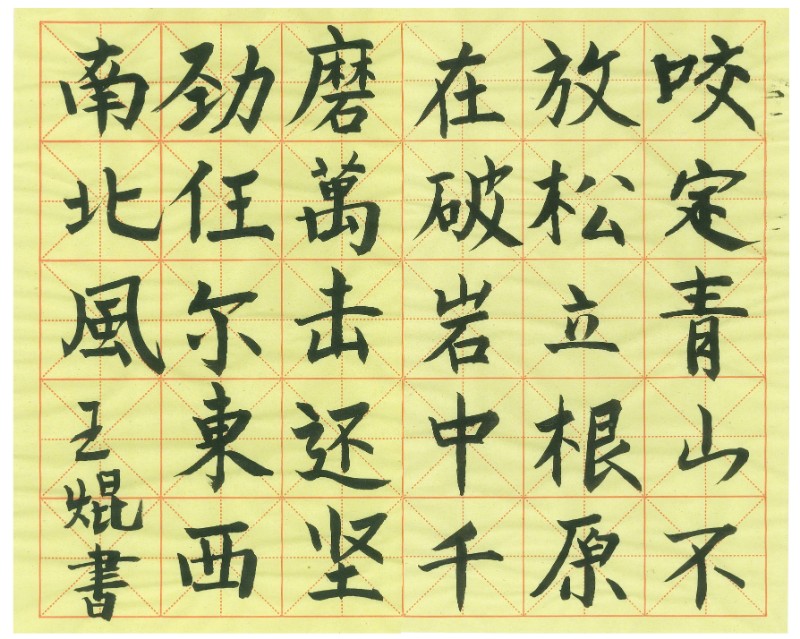 咬定青山不
放松立根原
在破岩中千
磨萬击还坚
劲任尔東西
南北風
王焜書